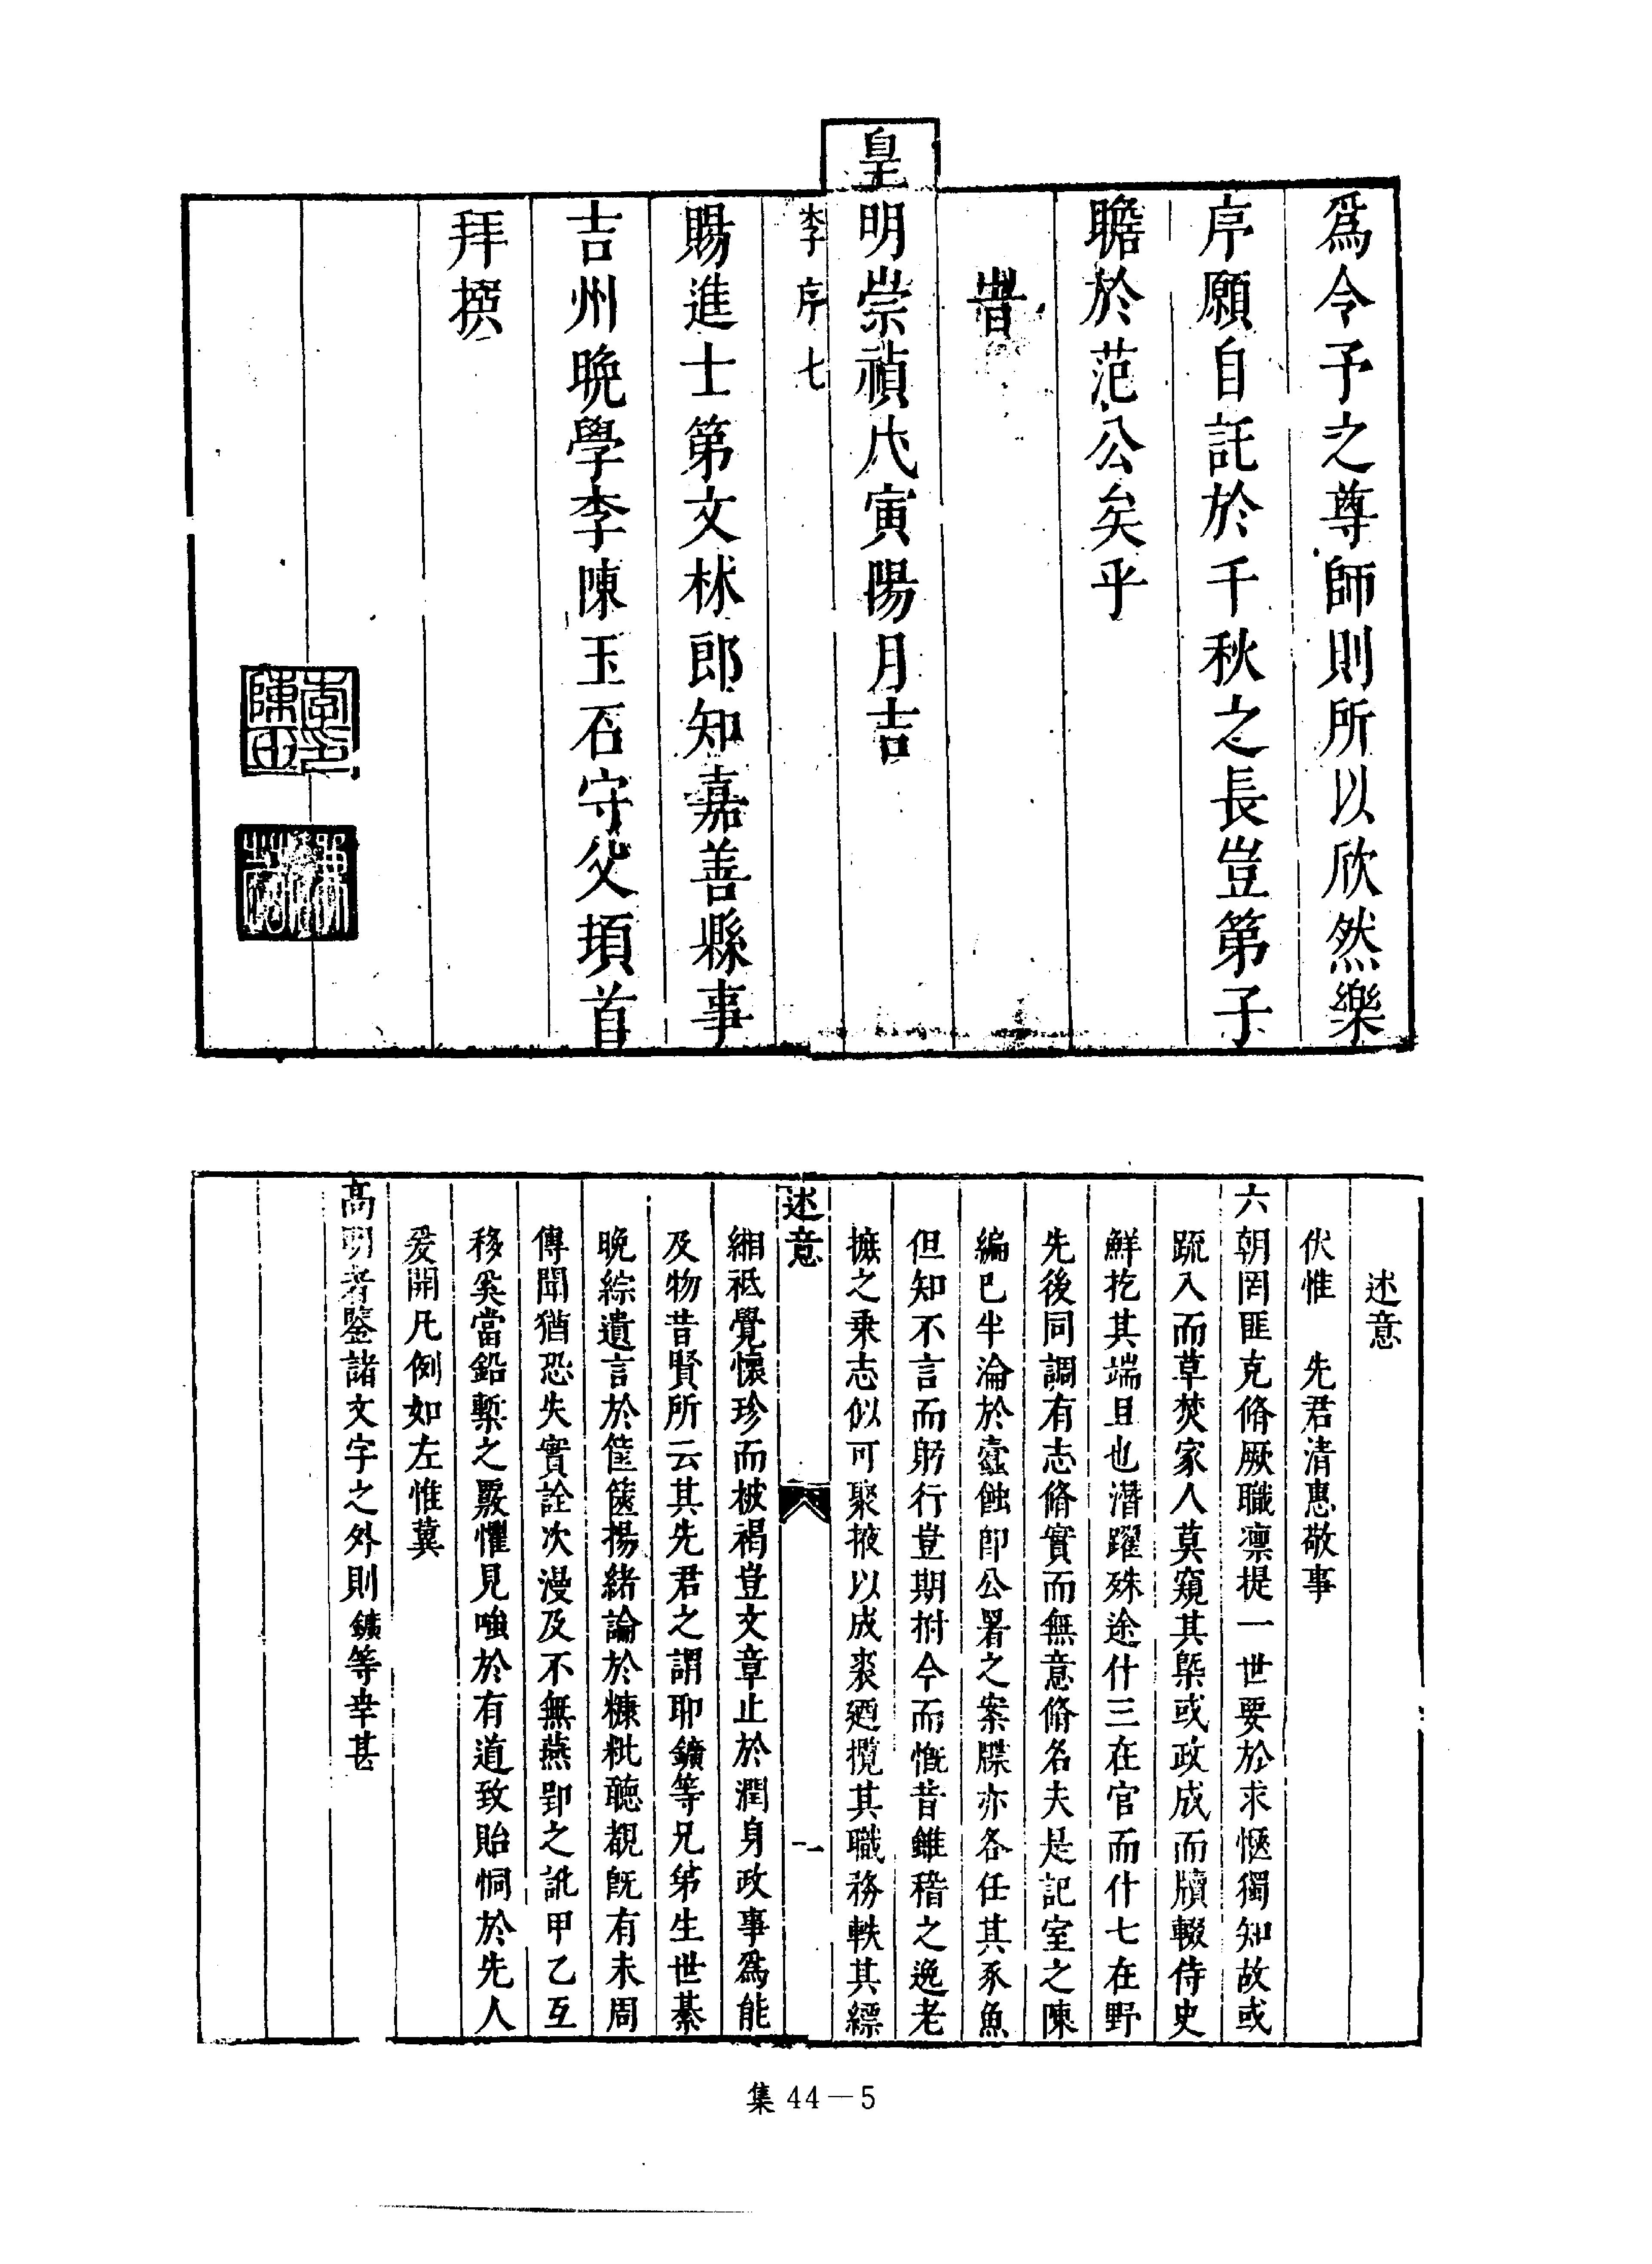 爲令予之尊師則所以欣然樂
序願自託於千秋之長豈第子
瞻於范公矣乎
旹
皇明崇禎戊寅陽月吉
李序 七
賜進士第文林郎知嘉善縣事
吉州晩學李陳玉石守父頓首
拜撰
述意
伏惟 先君清惠敬事
六朝罔匪克脩厥職凛提一世要於求愜獨知故或
疏入而草焚家人莫窺其㮣或政成而牘輟侍史
鮮扢其端且也潛躍殊途什三在官而什七在野
先後同調有志脩實而無意脩名夫是記室之陳
編已半淪於蠧蝕卽公署之案牒亦各任其豕魚
但知不言而躬行豈期拊今而慨昔雖稽之逸老
摭之乗志似可聚掖以成裘廼攬其職務軼其縹
述意
一
緗祇覺懷珍而被褐豈文章止於潤身政事爲能
及物昔賢所云其先君之謂耶鑛等兄弟生世綦
晩綜遺言於筐篋揚緒論於糠粃聴覩旣有未周
傳聞猶恐失實詮次漫及不無燕郢之訛甲乙互
移奚當鉛槧之覈懼見嗤於有道致貽恫於先人
爰開凡例如左惟冀
高明者鑒諸文字之外則鑛等幸甚
集 44—5